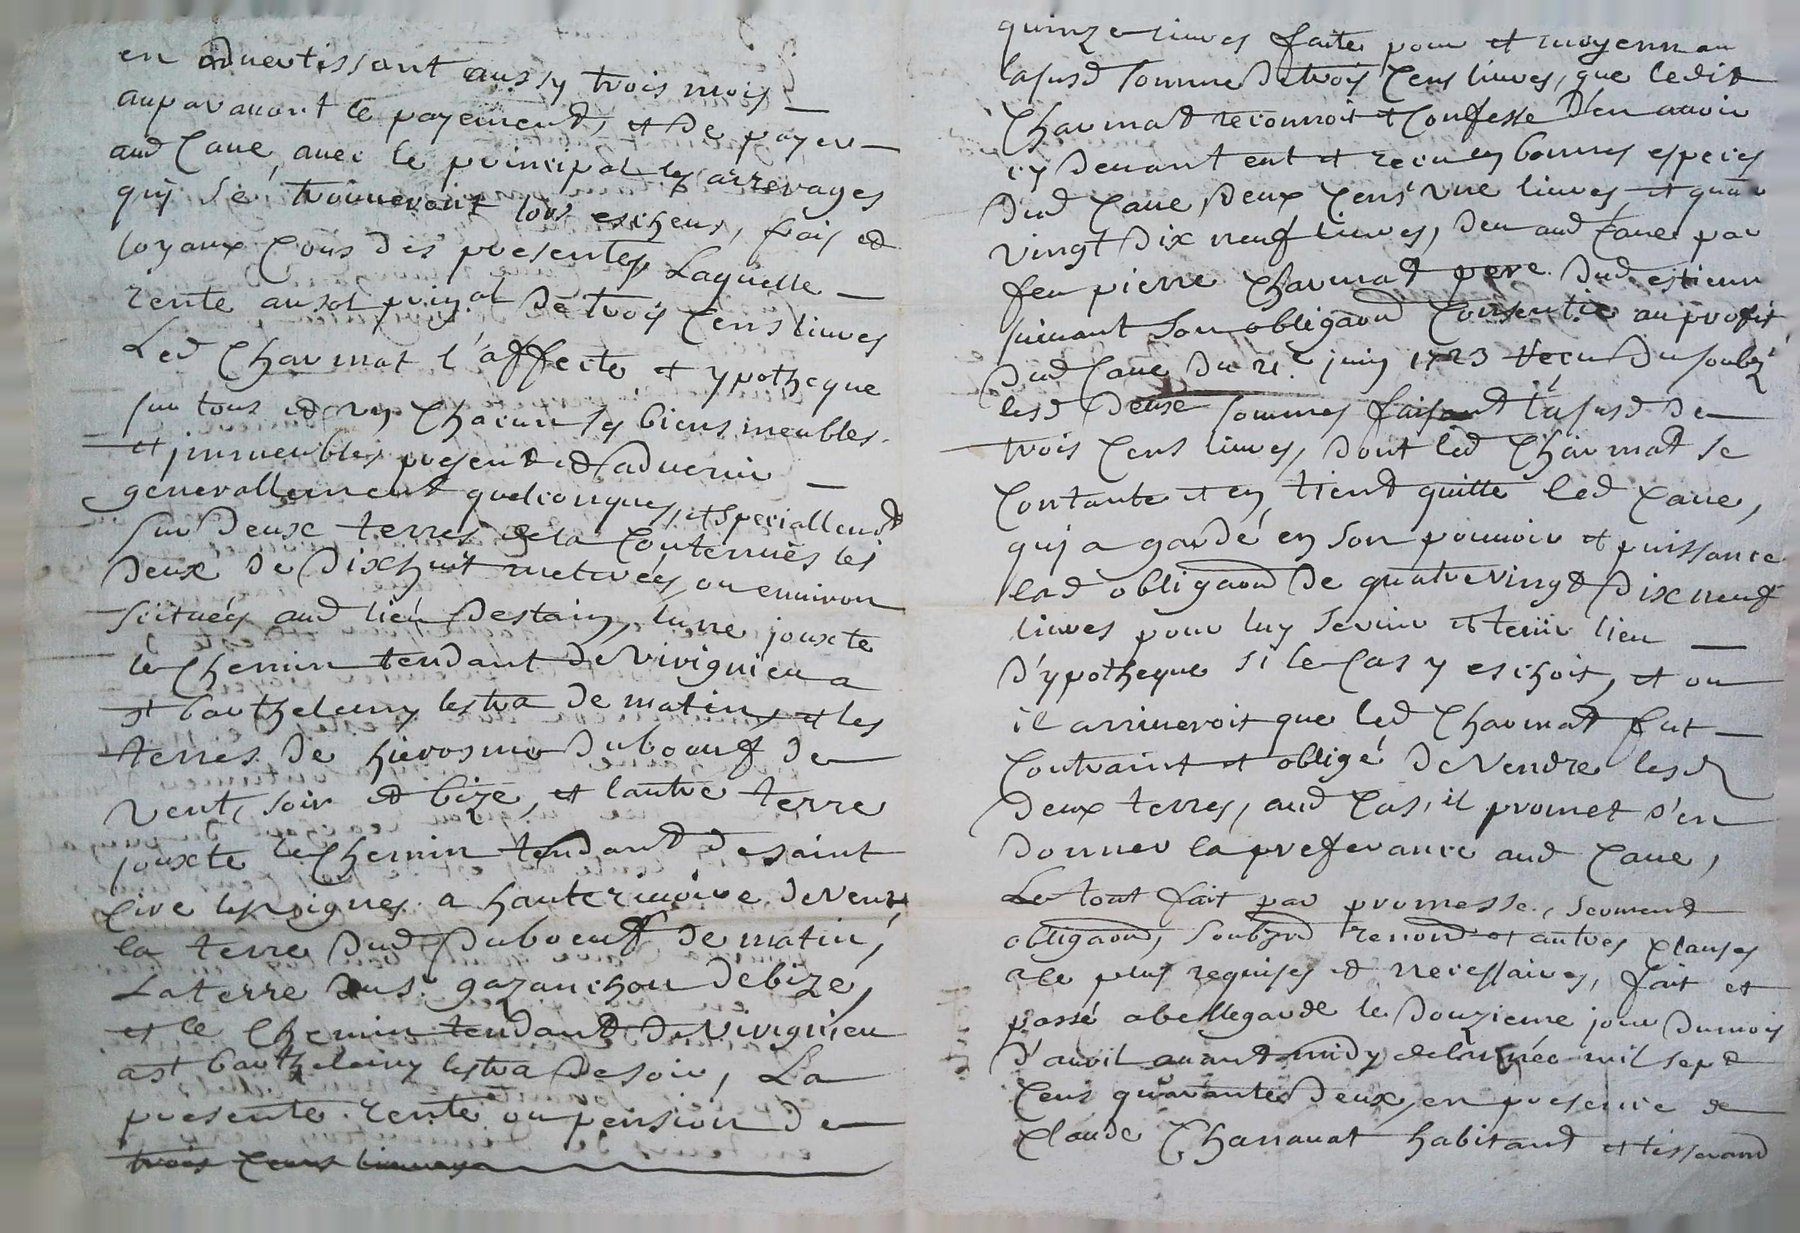 en advertissant aussy trois mois
auparavant le payement, et de payer
aud Cave avec le principal les arrerages
quy se trouveront lors escheus, frais et
loyaux cous des presentes, Laquelle
rente au sol prinpal de trois Cens livres
Led Charmat l'affecte et ypotheque
sur tous et un chacun ses biens meubles
et jmmeubles present et advenir
generallement quelconques, et speciallemt
sur deux terres de la Contenuës les
deux de dixhuit meterées, ou environ
scituées aud lieu destaing, lune jouxte
le chemin tendant de Virignieu a
st barthelemy lestra de matin, et les
terres de hierosme duboeuf de
vent, soir et bize, et lautre terre
jouxte le chemin tendant de saint
Cire les vignes a hauterivoire de vent,
la terre dud Duboeuf de matin,
La terre du sr gazanchon de bize,
et le chemin tendant de Virignieu
a st barthelemy lestra de soir, La
presente rente ou pension de
trois Cens livres
quinze livres faite pour et moyennan
lasusd somme de trois Cens livres, que ledit
Charmat reconnoit et Confesse d'en avoir
cy devant eut et receu en bonnes especes
dud Cave deux Cens une livres, et quatre
vingt dix neuf livres, deu aud Cave par
feu pierre Charmat pere dud estienne
suivant son obligaon Consentie au profit
dud Cave du 21e juin 1723 receu du soubzé
lesd deux sommes faisant la susd de
trois Cens livres, dont led Charmat se
Contante et en tient quitte led Cave,
qui a gardé en son pouvoir et puissance
lad obligaon de quatre vingt dix neuf
livres pour luy servir et tenir lieu
d'ypotheque si le Cas y eschoit, et ou
il arriveroit que led Charmat fut
Contraint et obligé de Vendre lesd
deux terres, aud Cas, il promet s'en
donner la preferance aud Cave,
Le tout fait par promesse, serment
obligaon, soubzon renon et autres clauses
a le plus requises et necessaires, fait et
passé a bellegarde le douzieme jour du mois
d'avril avant midy de lannée mil sept
Cens quarante deux, en presence de
Claude Charavat habitant et tisserand